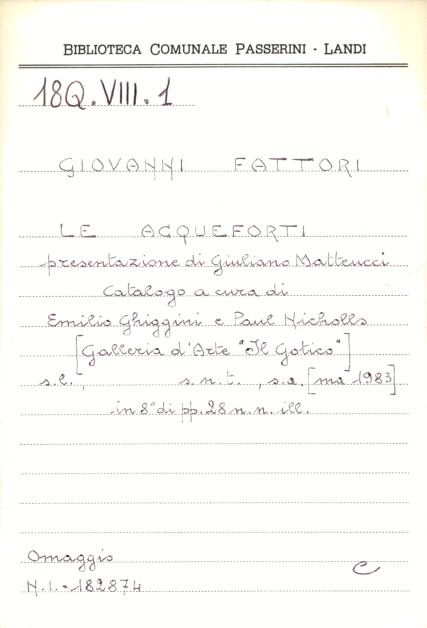 BIBLIOTECA COMUNALE PASSERINI - LANDI
18Q.VIII.1
GIOVANNI FATTORI
LE ACQUEFORTI
presentazione di Giuliano Matteucci
Catalogo a cura di
Emilio Ghiggini e Paul Nicholls
[Galleria d'Arte "Il Gotico"]
s.l., s.n.t., s.a. [ma 1983]
in 8° di pp. 28 n.n. ill.
Omaggio
N.I. - 182874
C